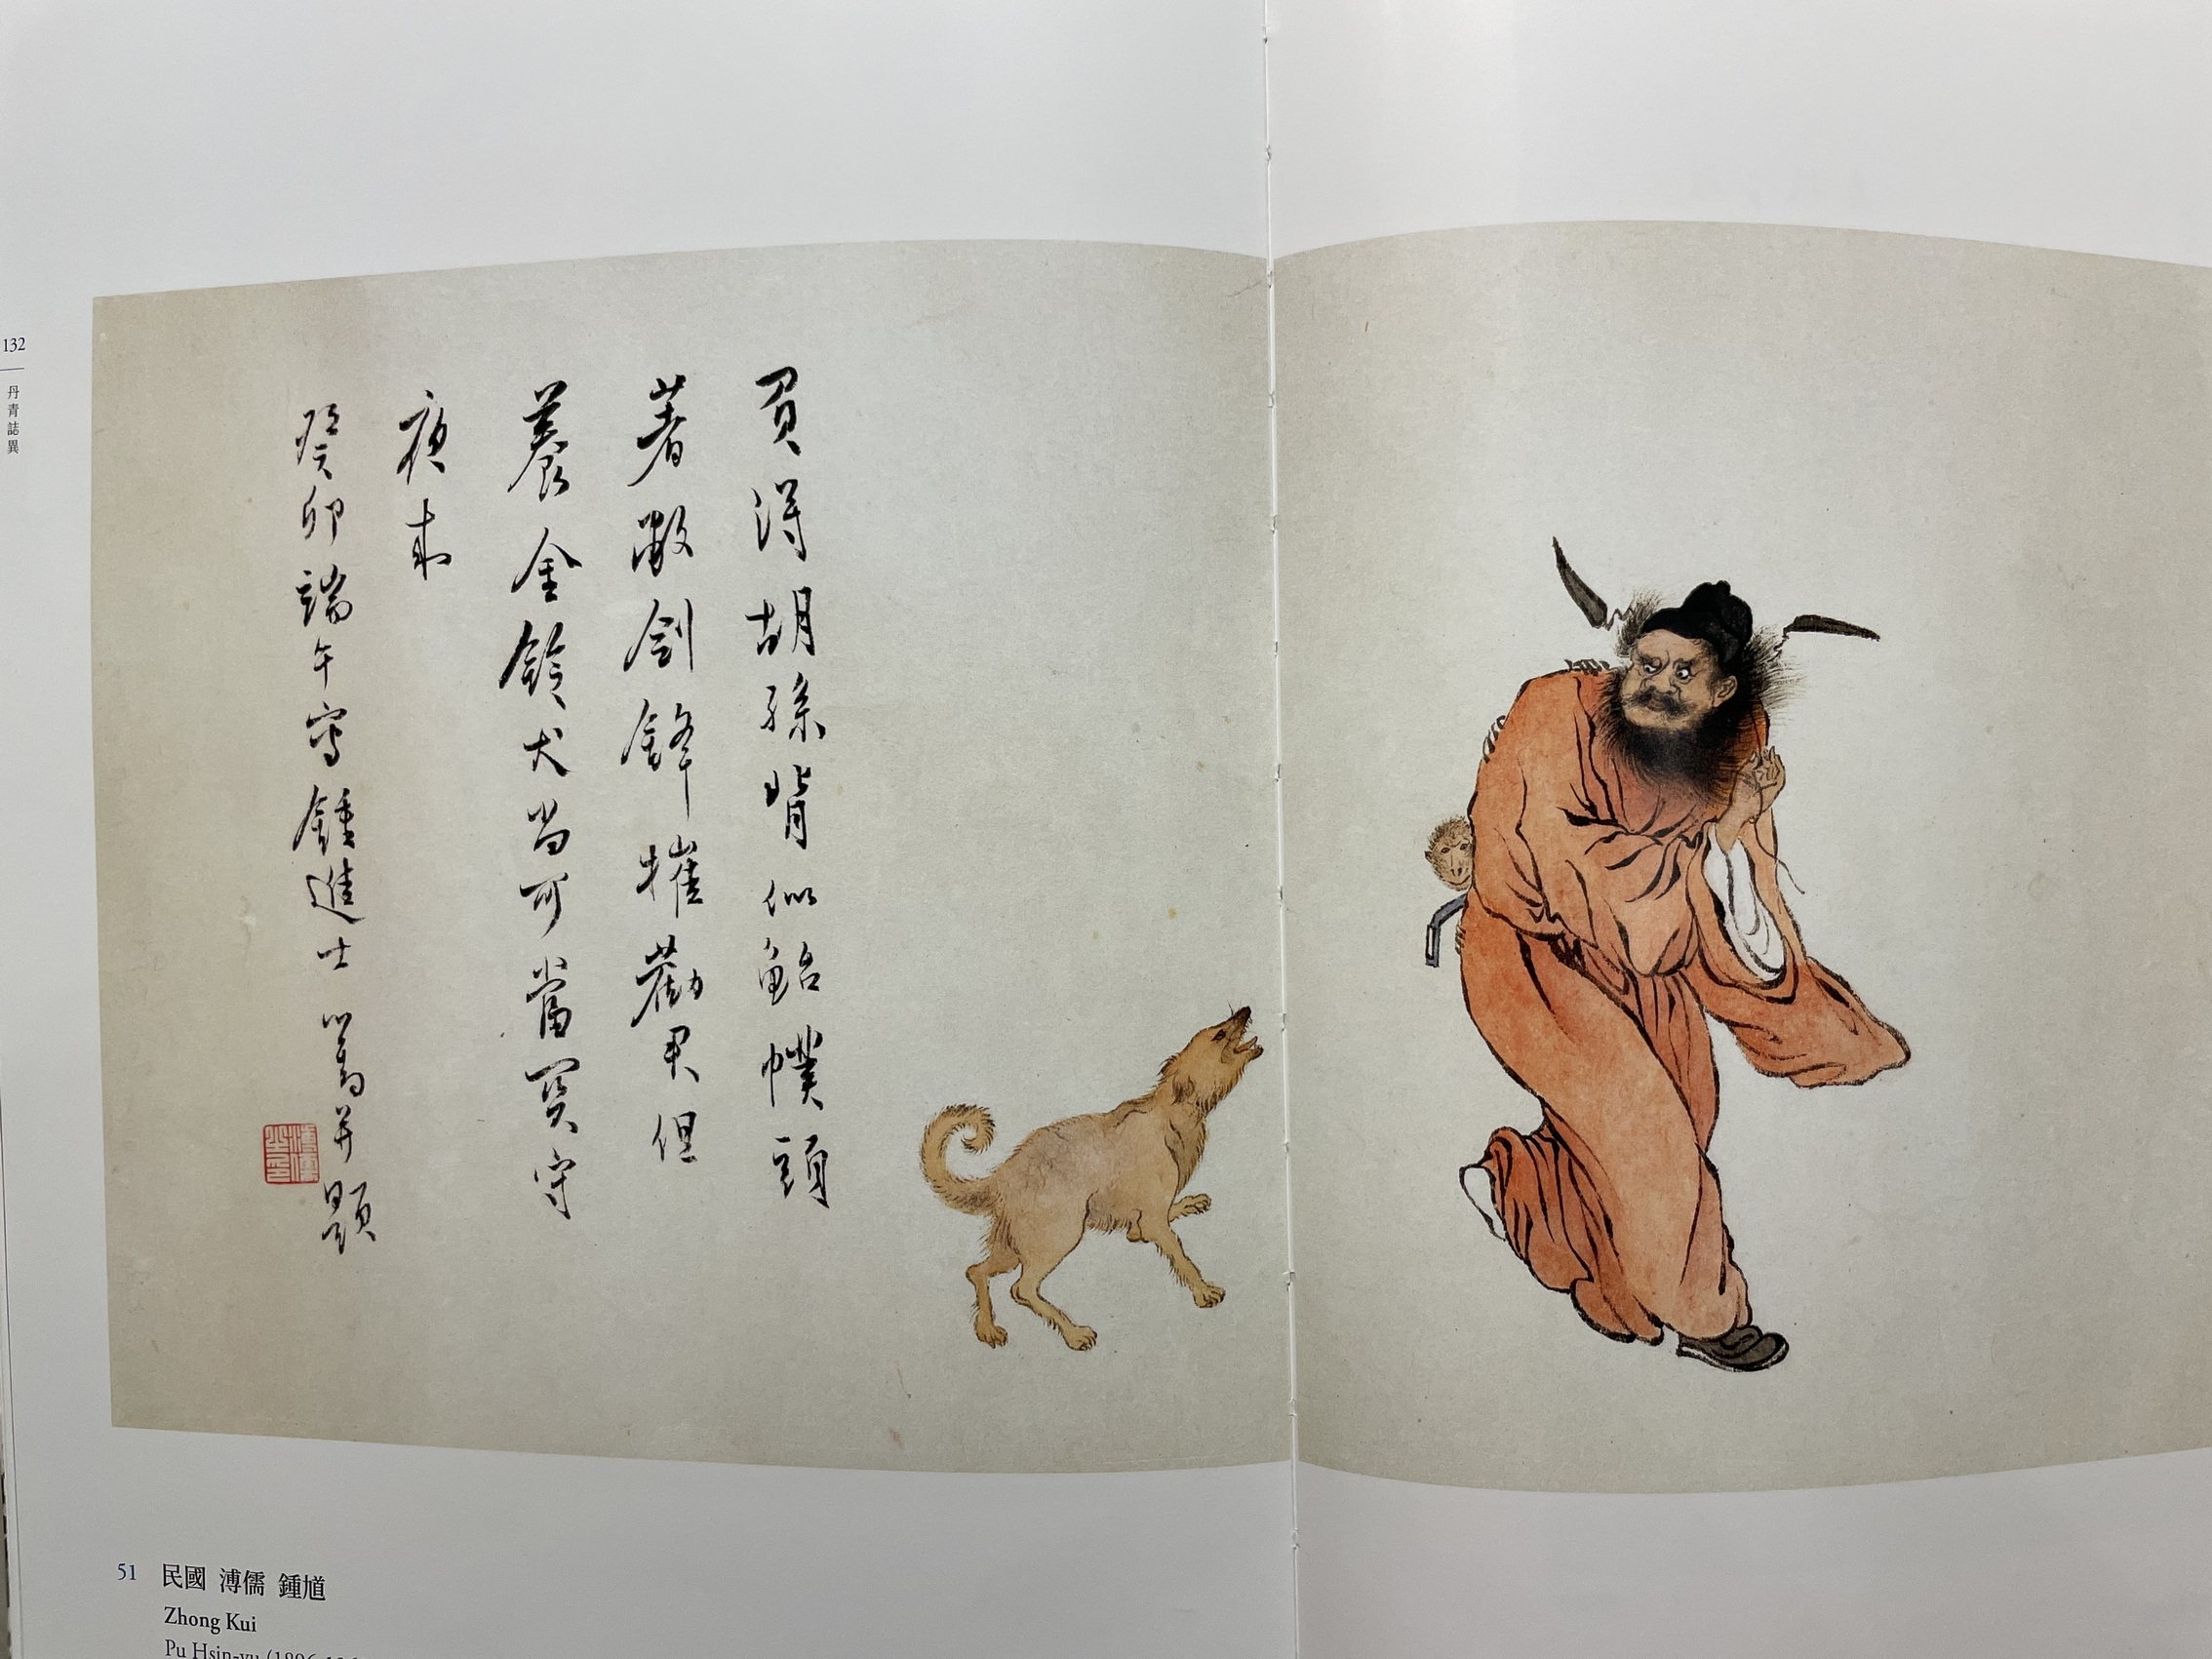 132
丹青誌異
買得胡孫背似鮐幞頭
著敝劍鋒摧勸君但
養金鈴犬尚可當關守
夜來
癸卯端午寫鍾進士 心畬并題
51 民國 溥儒 鍾馗
Zhong Kui
Pu Hsin-yu (1896-196